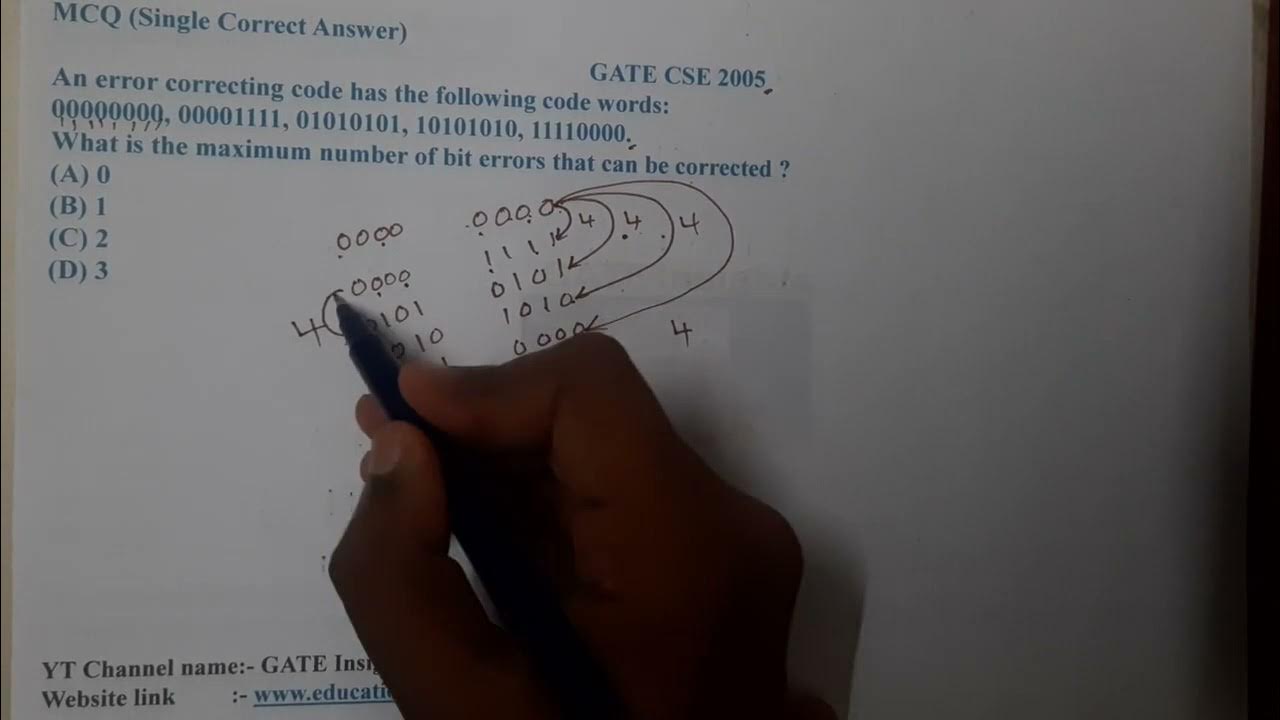 MCQ (Single Correct Answer)
GATE CSE 2005
An error correcting code has the following code words:
00000000, 00001111, 01010101, 10101010, 11110000.
What is the maximum number of bit errors that can be corrected ?
(A) 0
(B) 1
(C) 2
(D) 3
0000 0000 4 4 4
0000 1111
4 0101 0101
1010
0000 4
YT Channel name:- GATE
Website link :-